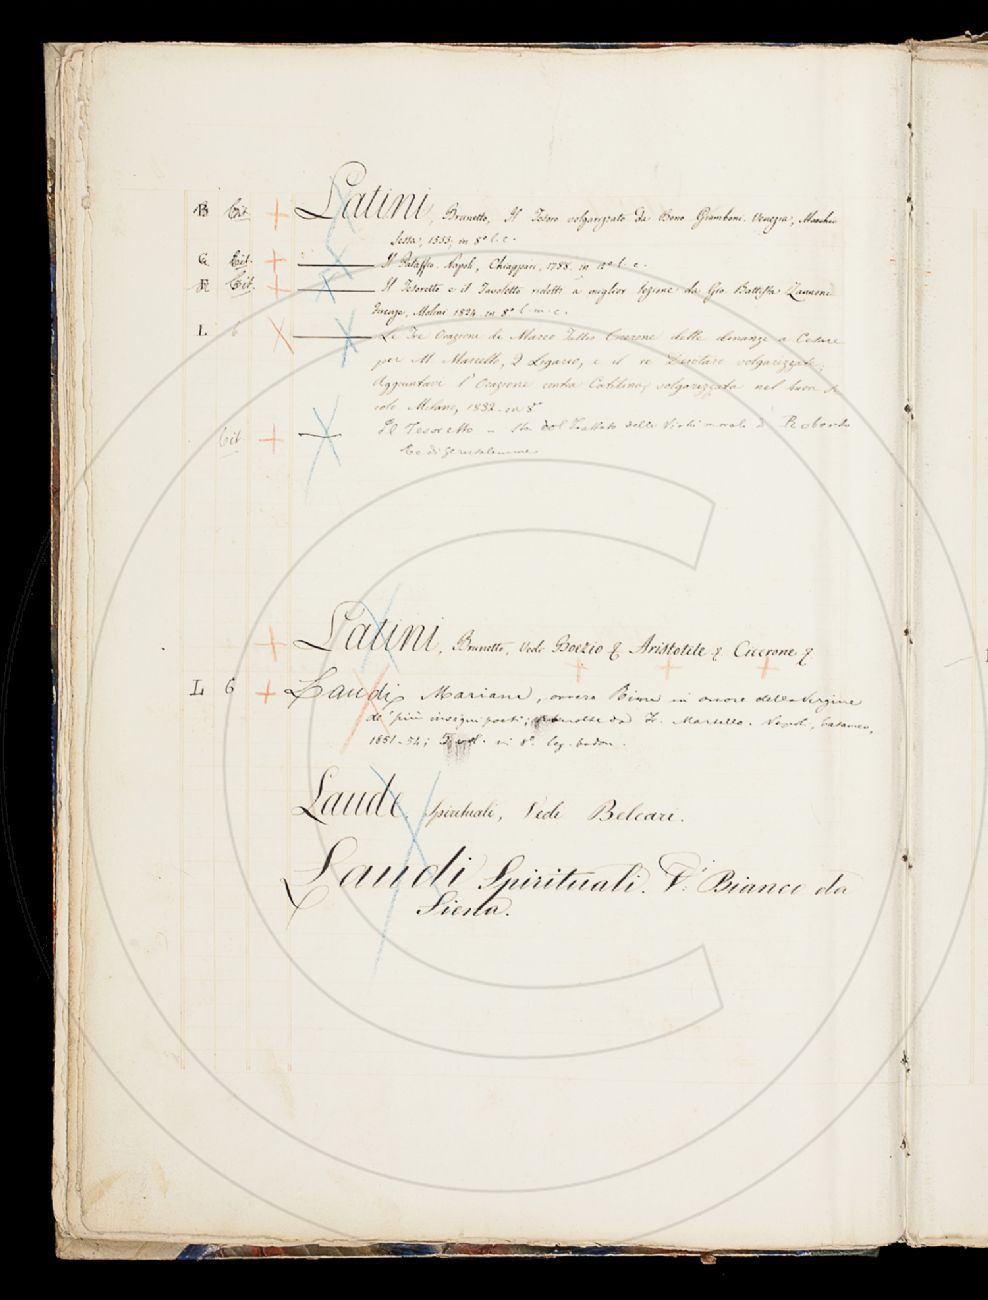 B Cit. Latini, Brunetto, Il Tesoro volgarizzato da Bono Giamboni. Venezia, Marchio
Sessa, 1533, in 8º l. c.
G Cit. Il Pataffio. Napoli, Chiappari, 1788. in 12º l. c.
E Cit. Il Tesoretto e il Favoletto ridotti a miglior lezione da Gio. Battista Zannoni
Firenze, Molini 1824. in 8º l. m. c.
L 6 Le Tre Orazioni di Marco Tullio Cicerone dette dinanzi a Cesare
per M. Marcello, Q. Ligario, e il re Dejotaro volgarizzate;
Aggiuntavi l'Orazione contra Catilina, volgarizzata nel buon se
colo. Milano, 1832. in 8º
Cit Il Tesoretto - Sta col Trattato delle Virtù morali di Roberto
Re di Gerusalemme
Latini, Brunetto, Vedi Boezio & Aristotile & Cicerone &
L 6 Laudi Mariane, ovvero Rime in onore della Vergine
de' più insigni poeti; da F. Martello. Napoli, Cataneo,
1851-54; in 8º. leg. bodon.
Laude, Spirituali, Vedi Belcari.
Laudi Spirituali. V. Bianco da
Siena.